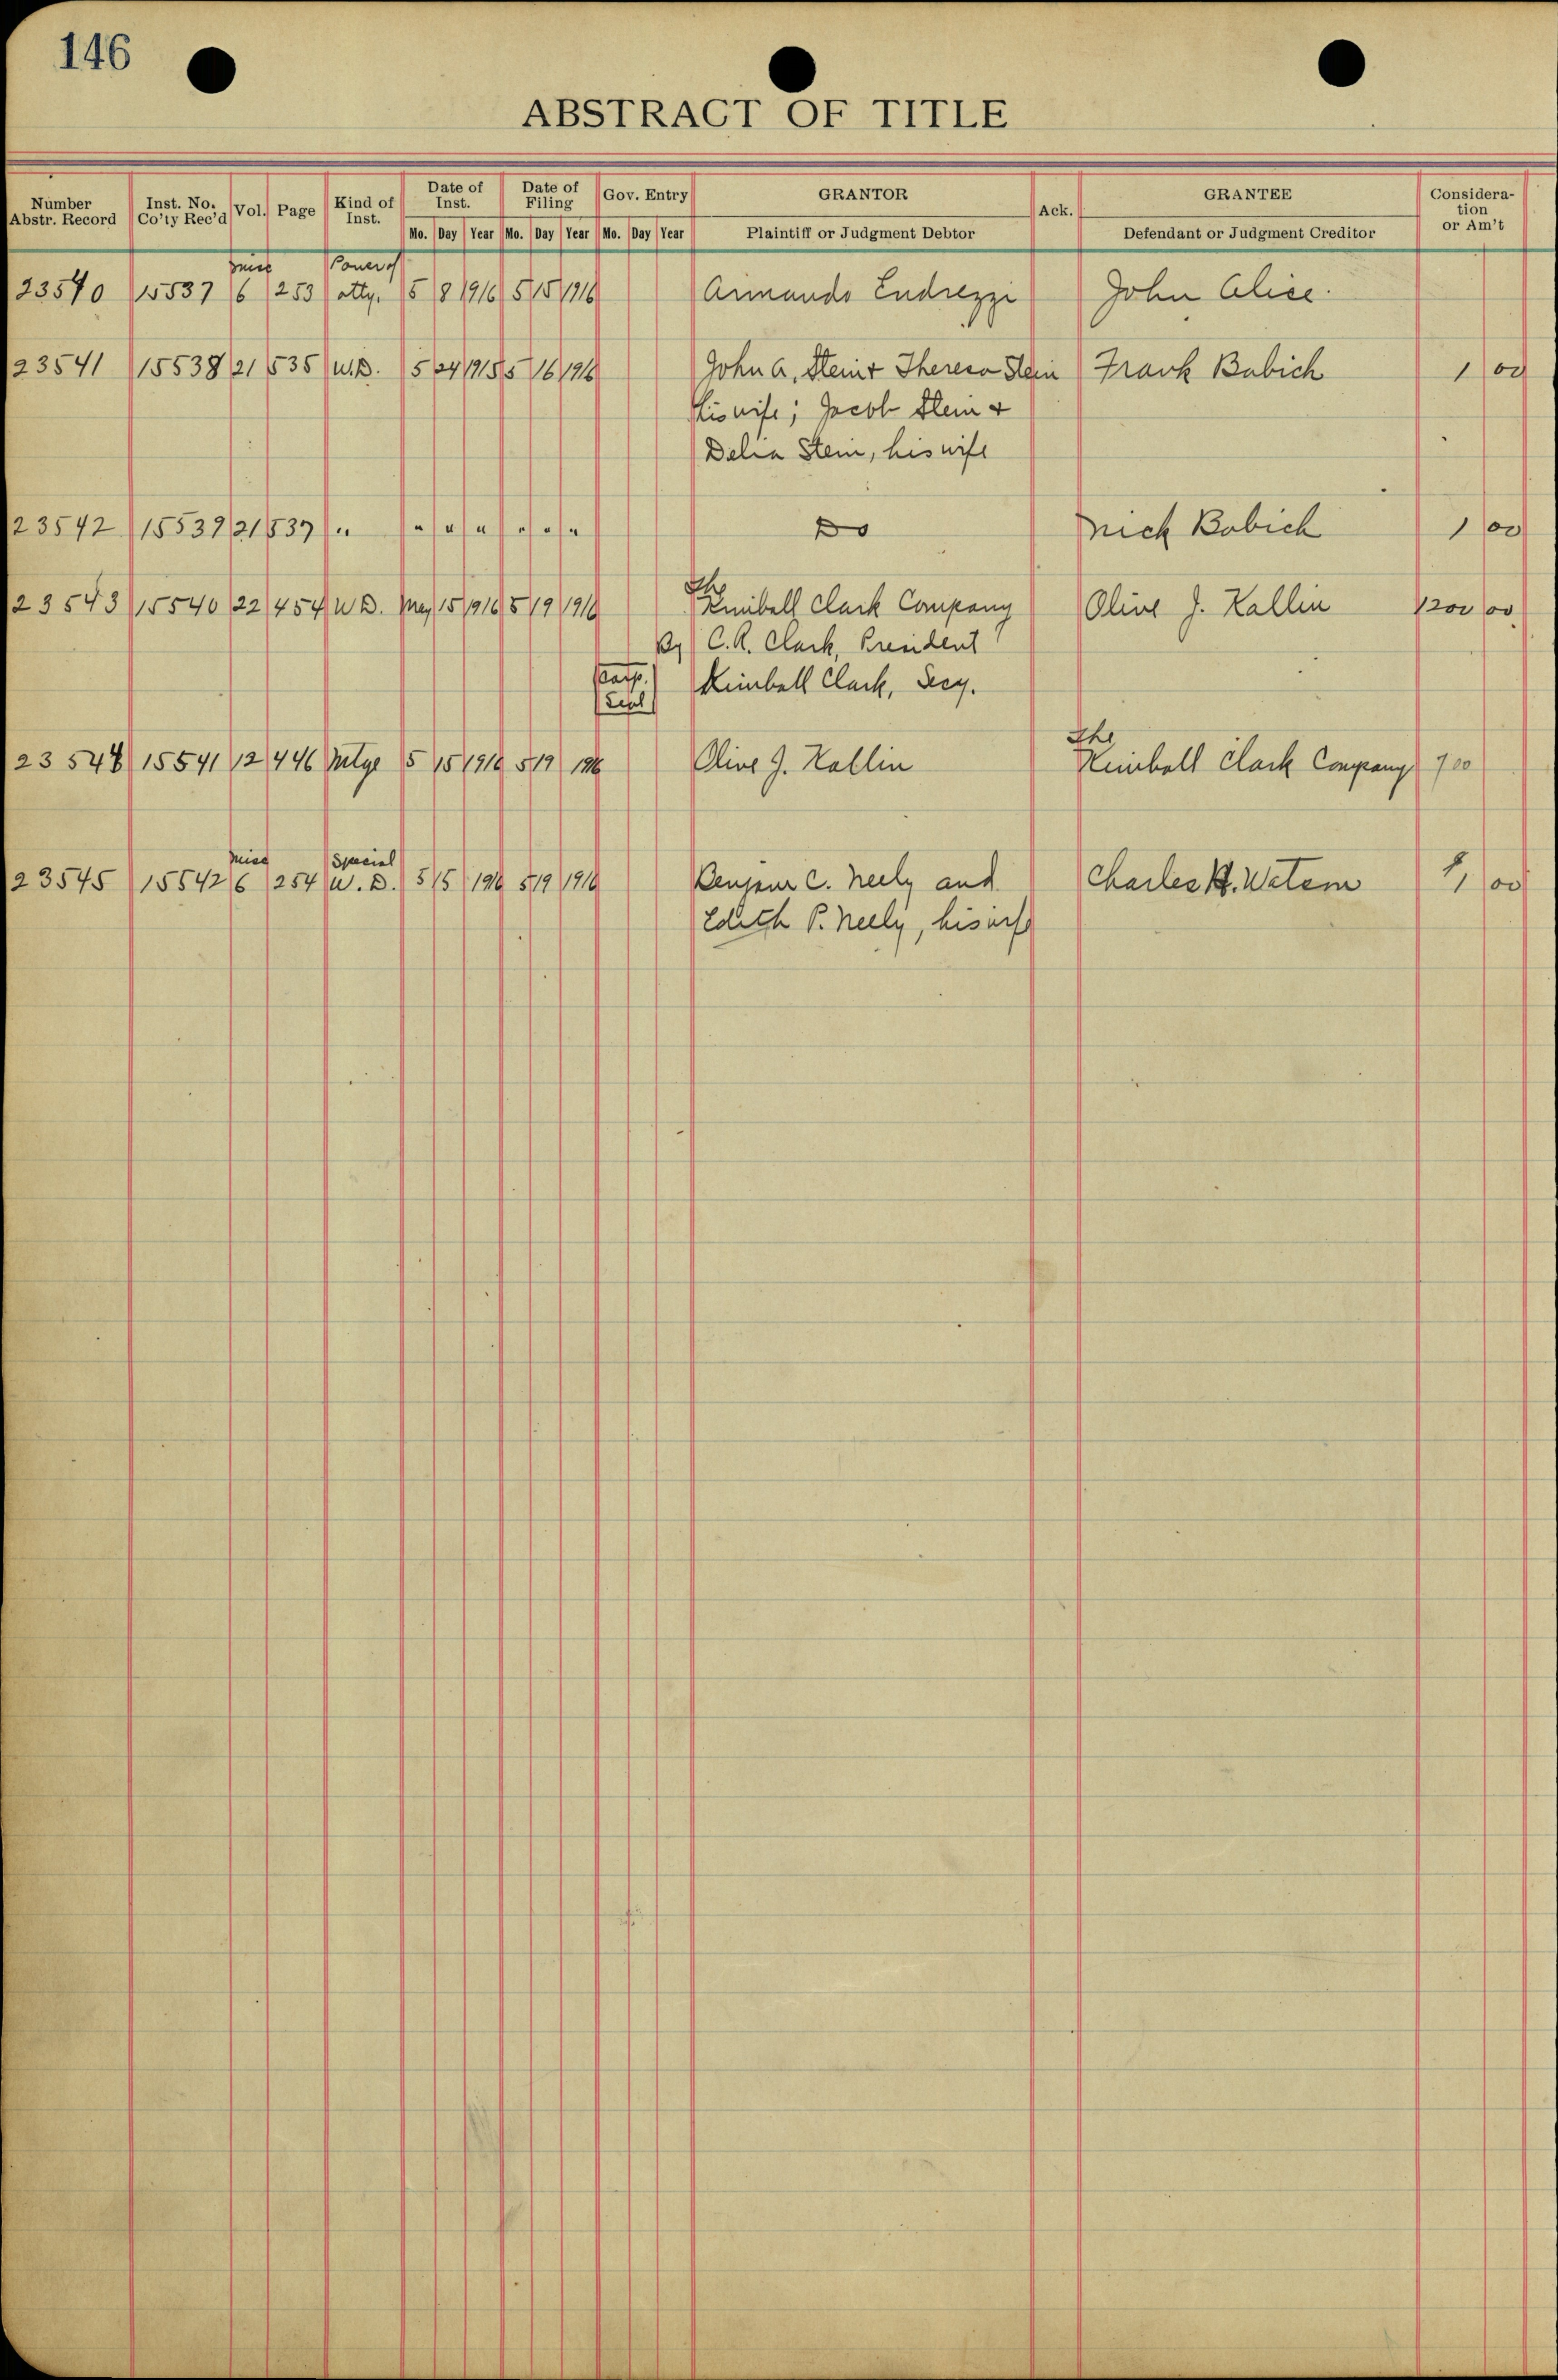 146
ABSTRACT OF TITLE
Number Abstr. Record Inst. No. Co'ty Rec'd Vol. Page Kind of Inst. Date of Inst. Date of Filing Gov. Entry GRANTOR Ack. GRANTEE Considera-tion or Am't
Mo. Day Year Mo. Day Year Mo. Day Year Plaintiff or Judgment Debtor Defendant or Judgment Creditor
Misc Power of
23540 15537 6 253 atty. 5 8 1916 5 15 1916 Armando Endrezzi John Alice.
23541 15538 21 535 W.D. 5 24 1915 5 16 1916 John A. Stein & Theresa Stein Frank Babich 1 00
his wife; Jacob Stein &
Delia Stein, his wife
23542 15539 21 537 " " " " " " " Do Nick Babich 1 00
The
23543 15540 22 454 W D. May 15 1916 5 19 1916 Kimball Clark Company Olive J. Kallin 1200 00
By C. A. Clark, President
(Corp.) Kimball Clark, Secy.
(Seal)
The
23544 15541 12 446 Mtge 5 15 1916 5 19 1916 Olive J. Kallin Kimball Clark Company 700
Misc Special
23545 15542 6 254 W. D. 5 15 1916 5 19 1916 C. Neely and Charles H. 1 00
Edith P. Neely, his wife